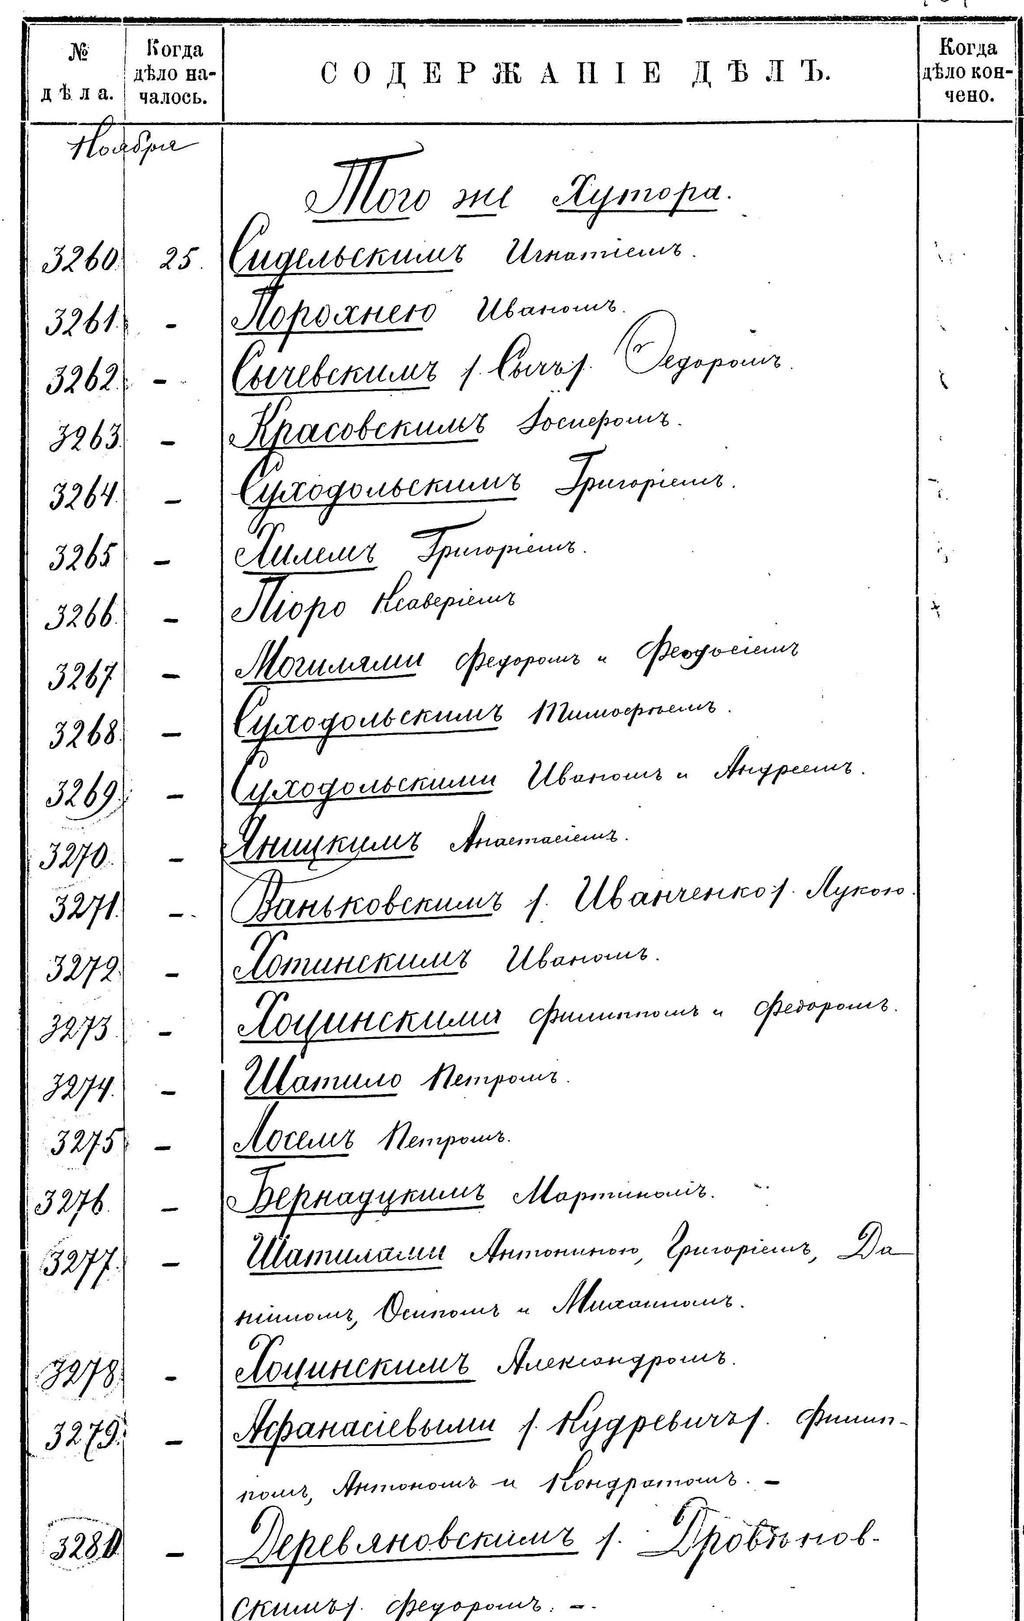 № дѣла.
Когда дѣло началось.
СОДЕРЖАНІЕ ДѢЛЪ.
Когда дѣло кончено.
Ноября
Того же Хутора.
3260 25. Сидельскимъ Игнатіемъ.
3261. - Порохнею Иваномъ.
3262. - Сычевскимъ /. Сычъ/. Ѳедоромъ.
3263. - Красовскимъ Іосифомъ.
3264. - Суходольскимъ Григоріемъ.
3265 - Хилемъ Григоріемъ.
3266. - Піоро Ксаверіемъ
3267 - Могилями Федоромъ и Феодосіемъ
3268. - Суходольскимъ Тимофѣемъ.
3269. - Суходольскими Иваномъ и Андреемъ.
3270. - Яницкимъ Анастасіемъ.
3271. - Ваньковскимъ /. Иванченко/. Лукою.
3272. - Хотинскимъ Иваномъ.
3273. - Хоцинскими Филиппомъ и Федоромъ.
3274. - Шатило Петромъ.
3275 - Лосемъ Петромъ.
3276. - Бернадцкимъ Мартиномъ.
3277. - Шатилами Антониною, Григоріемъ, Да
ніиломъ, Осипомъ и Михаиломъ.
3278 - Хоцинскимъ Александромъ.
3279. - Афанасіевыми /. Кудревичъ/. Филип-
помъ, Антономъ и Кондратомъ. -
3280 - Деревяновскимъ /. Дровянов-
скимъ/. Федоромъ. -.